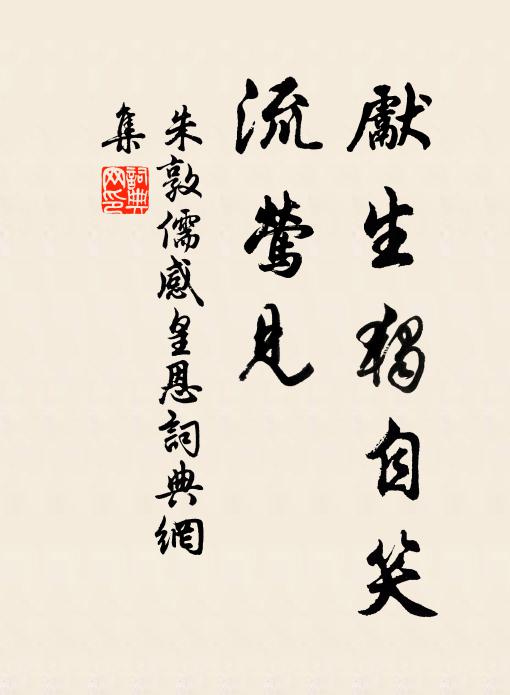 獻生獨自笑
流鶯見
朱敦儒感皇恩詞典網
集
詞典
网印